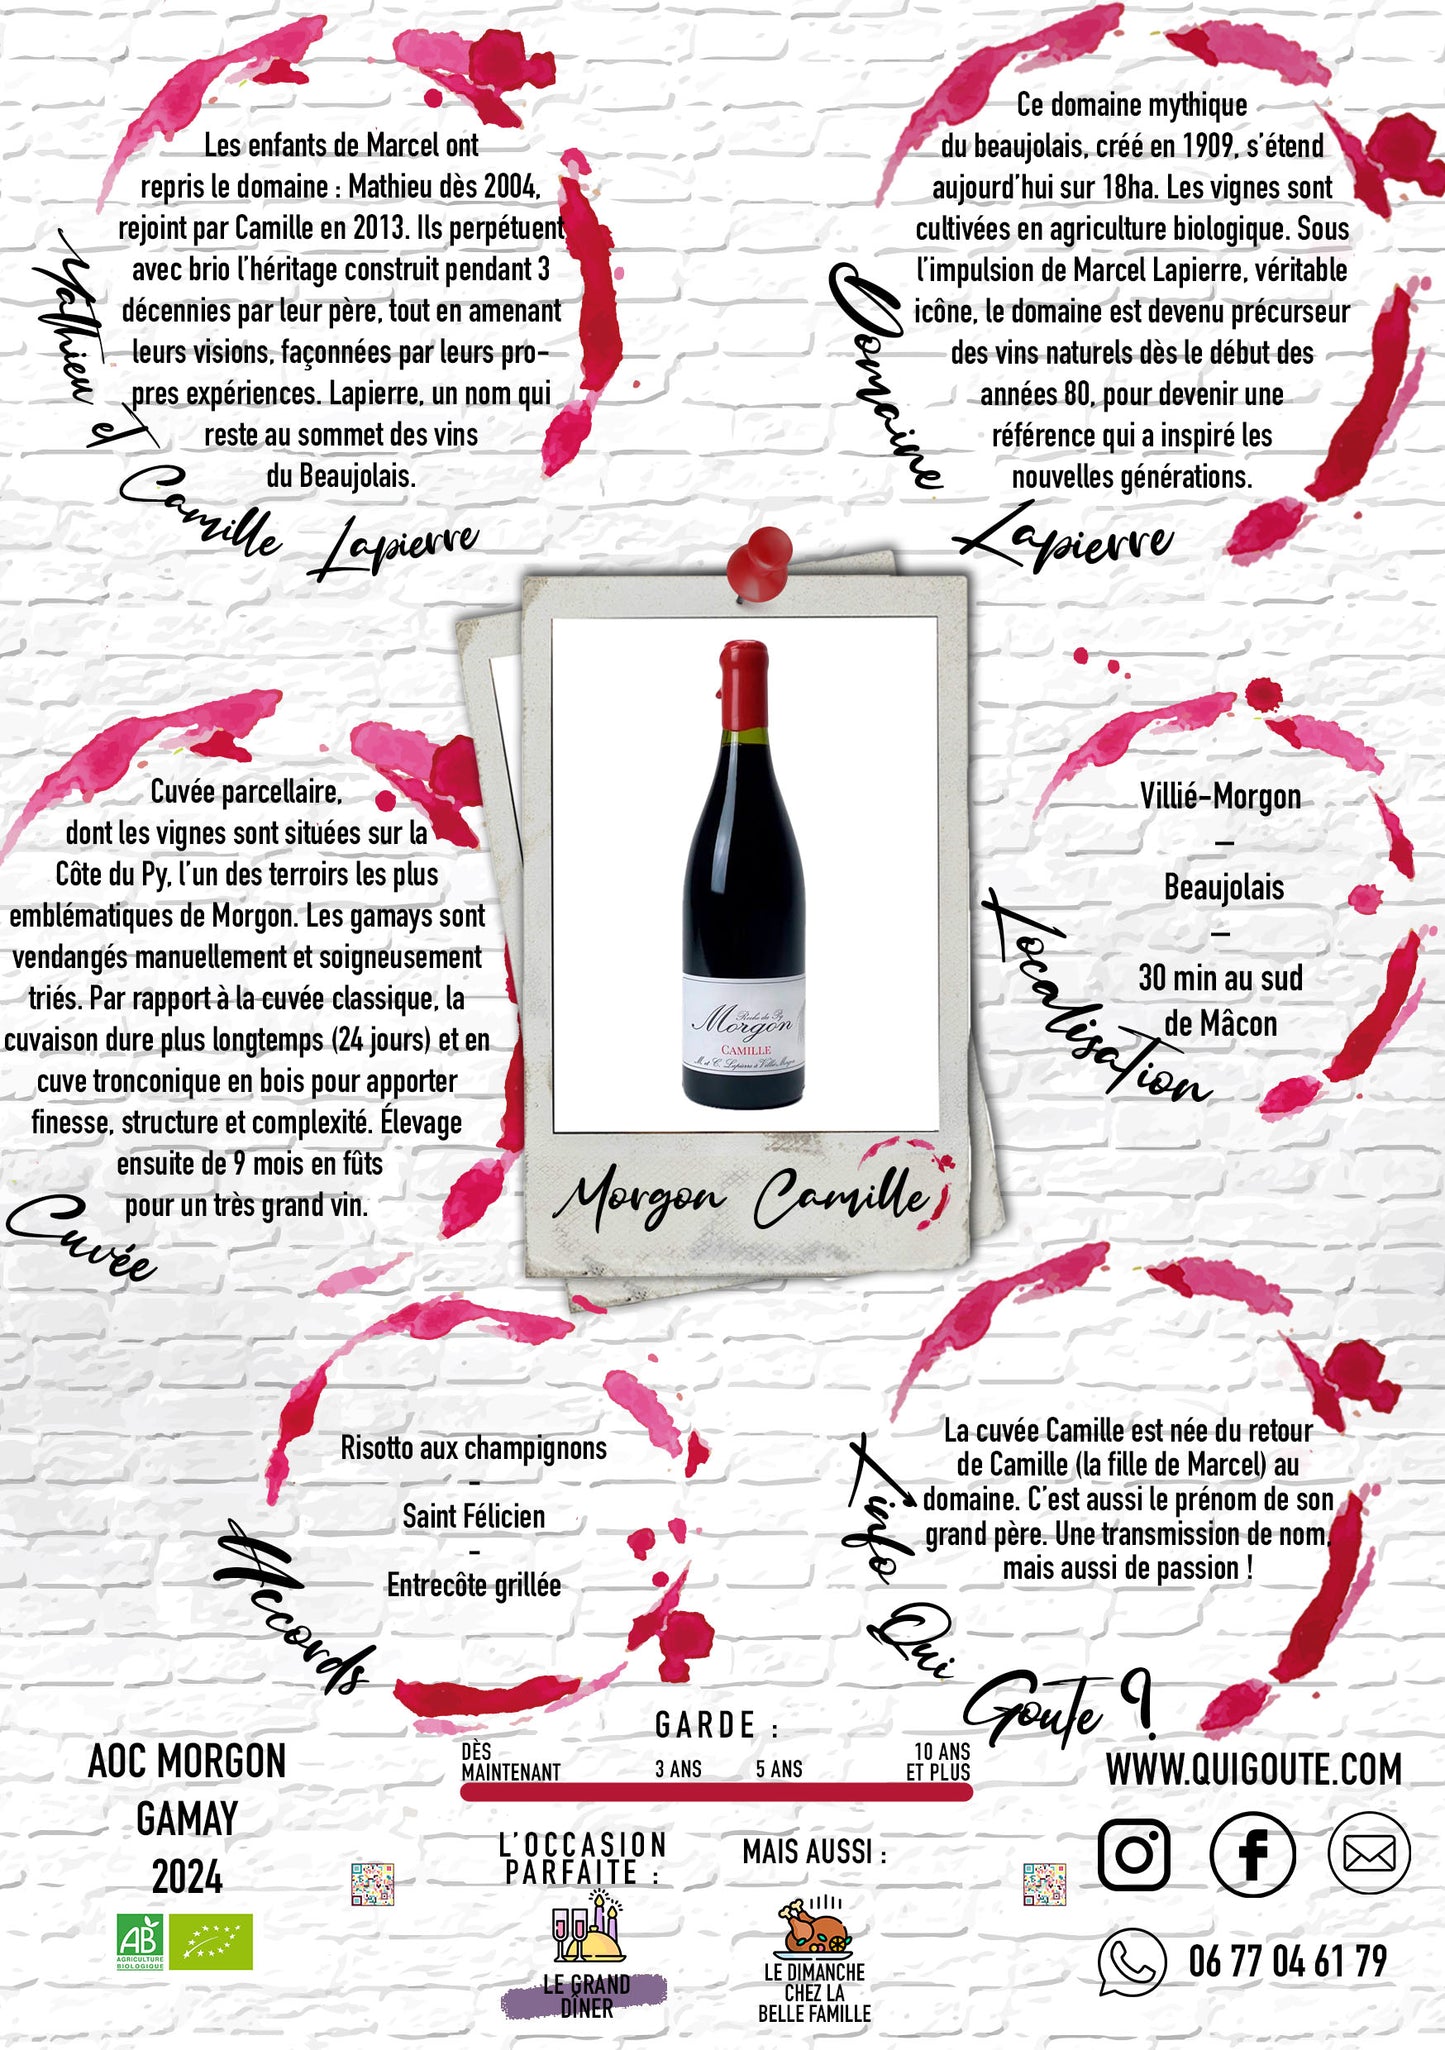 Les enfants de Marcel ont
repris le domaine : Mathieu dès 2004,
rejoint par Camille en 2013. Ils perpétuent
avec brio l'héritage construit pendant 3
décennies par leur père, tout en amenant
leurs visions, façonnées par leurs pro-
pres expériences. Lapierre, un nom qui
reste au sommet des vins
du Beaujolais.
Mathieu et Camille Lapierre
Ce domaine mythique
du beaujolais, créé en 1909, s'étend
aujourd'hui sur 18ha. Les vignes sont
cultivées en agriculture biologique. Sous
l'impulsion de Marcel Lapierre, véritable
icône, le domaine est devenu précurseur
des vins naturels dès le début des
années 80, pour devenir une
référence qui a inspiré les
nouvelles générations.
Domaine Lapierre
Cuvée parcellaire,
dont les vignes sont situées sur la
Côte du Py, l'un des terroirs les plus
emblématiques de Morgon. Les gamays sont
vendangés manuellement et soigneusement
triés. Par rapport à la cuvée classique, la
cuvaison dure plus longtemps (24 jours) et en
cuve tronconique en bois pour apporter
finesse, structure et complexité. Élevage
ensuite de 9 mois en fûts
pour un très grand vin.
Cuvée
Roche du Py
Morgon
CAMILLE
M. et C. Lapierre à Villié-Morgon
Morgon Camille
Villié-Morgon
–
Beaujolais
–
30 min au sud
de Mâcon
Localisation
Risotto aux champignons
-
Saint Félicien
-
Entrecôte grillée
Accords
La cuvée Camille est née du retour
de Camille (la fille de Marcel) au
domaine. C'est aussi le prénom de son
grand père. Une transmission de nom,
mais aussi de passion !
L'info Qui Goute ?
AOC MORGON
GAMAY
2024
AB
AGRICULTURE
BIOLOGIQUE
GARDE :
DÈS
MAINTENANT
3 ANS
5 ANS
10 ANS
ET PLUS
L'OCCASION
PARFAITE :
LE GRAND
DÎNER
MAIS AUSSI :
LE DIMANCHE
CHEZ LA
BELLE FAMILLE
WWW.QUIGOUTE.COM
06 77 04 61 79